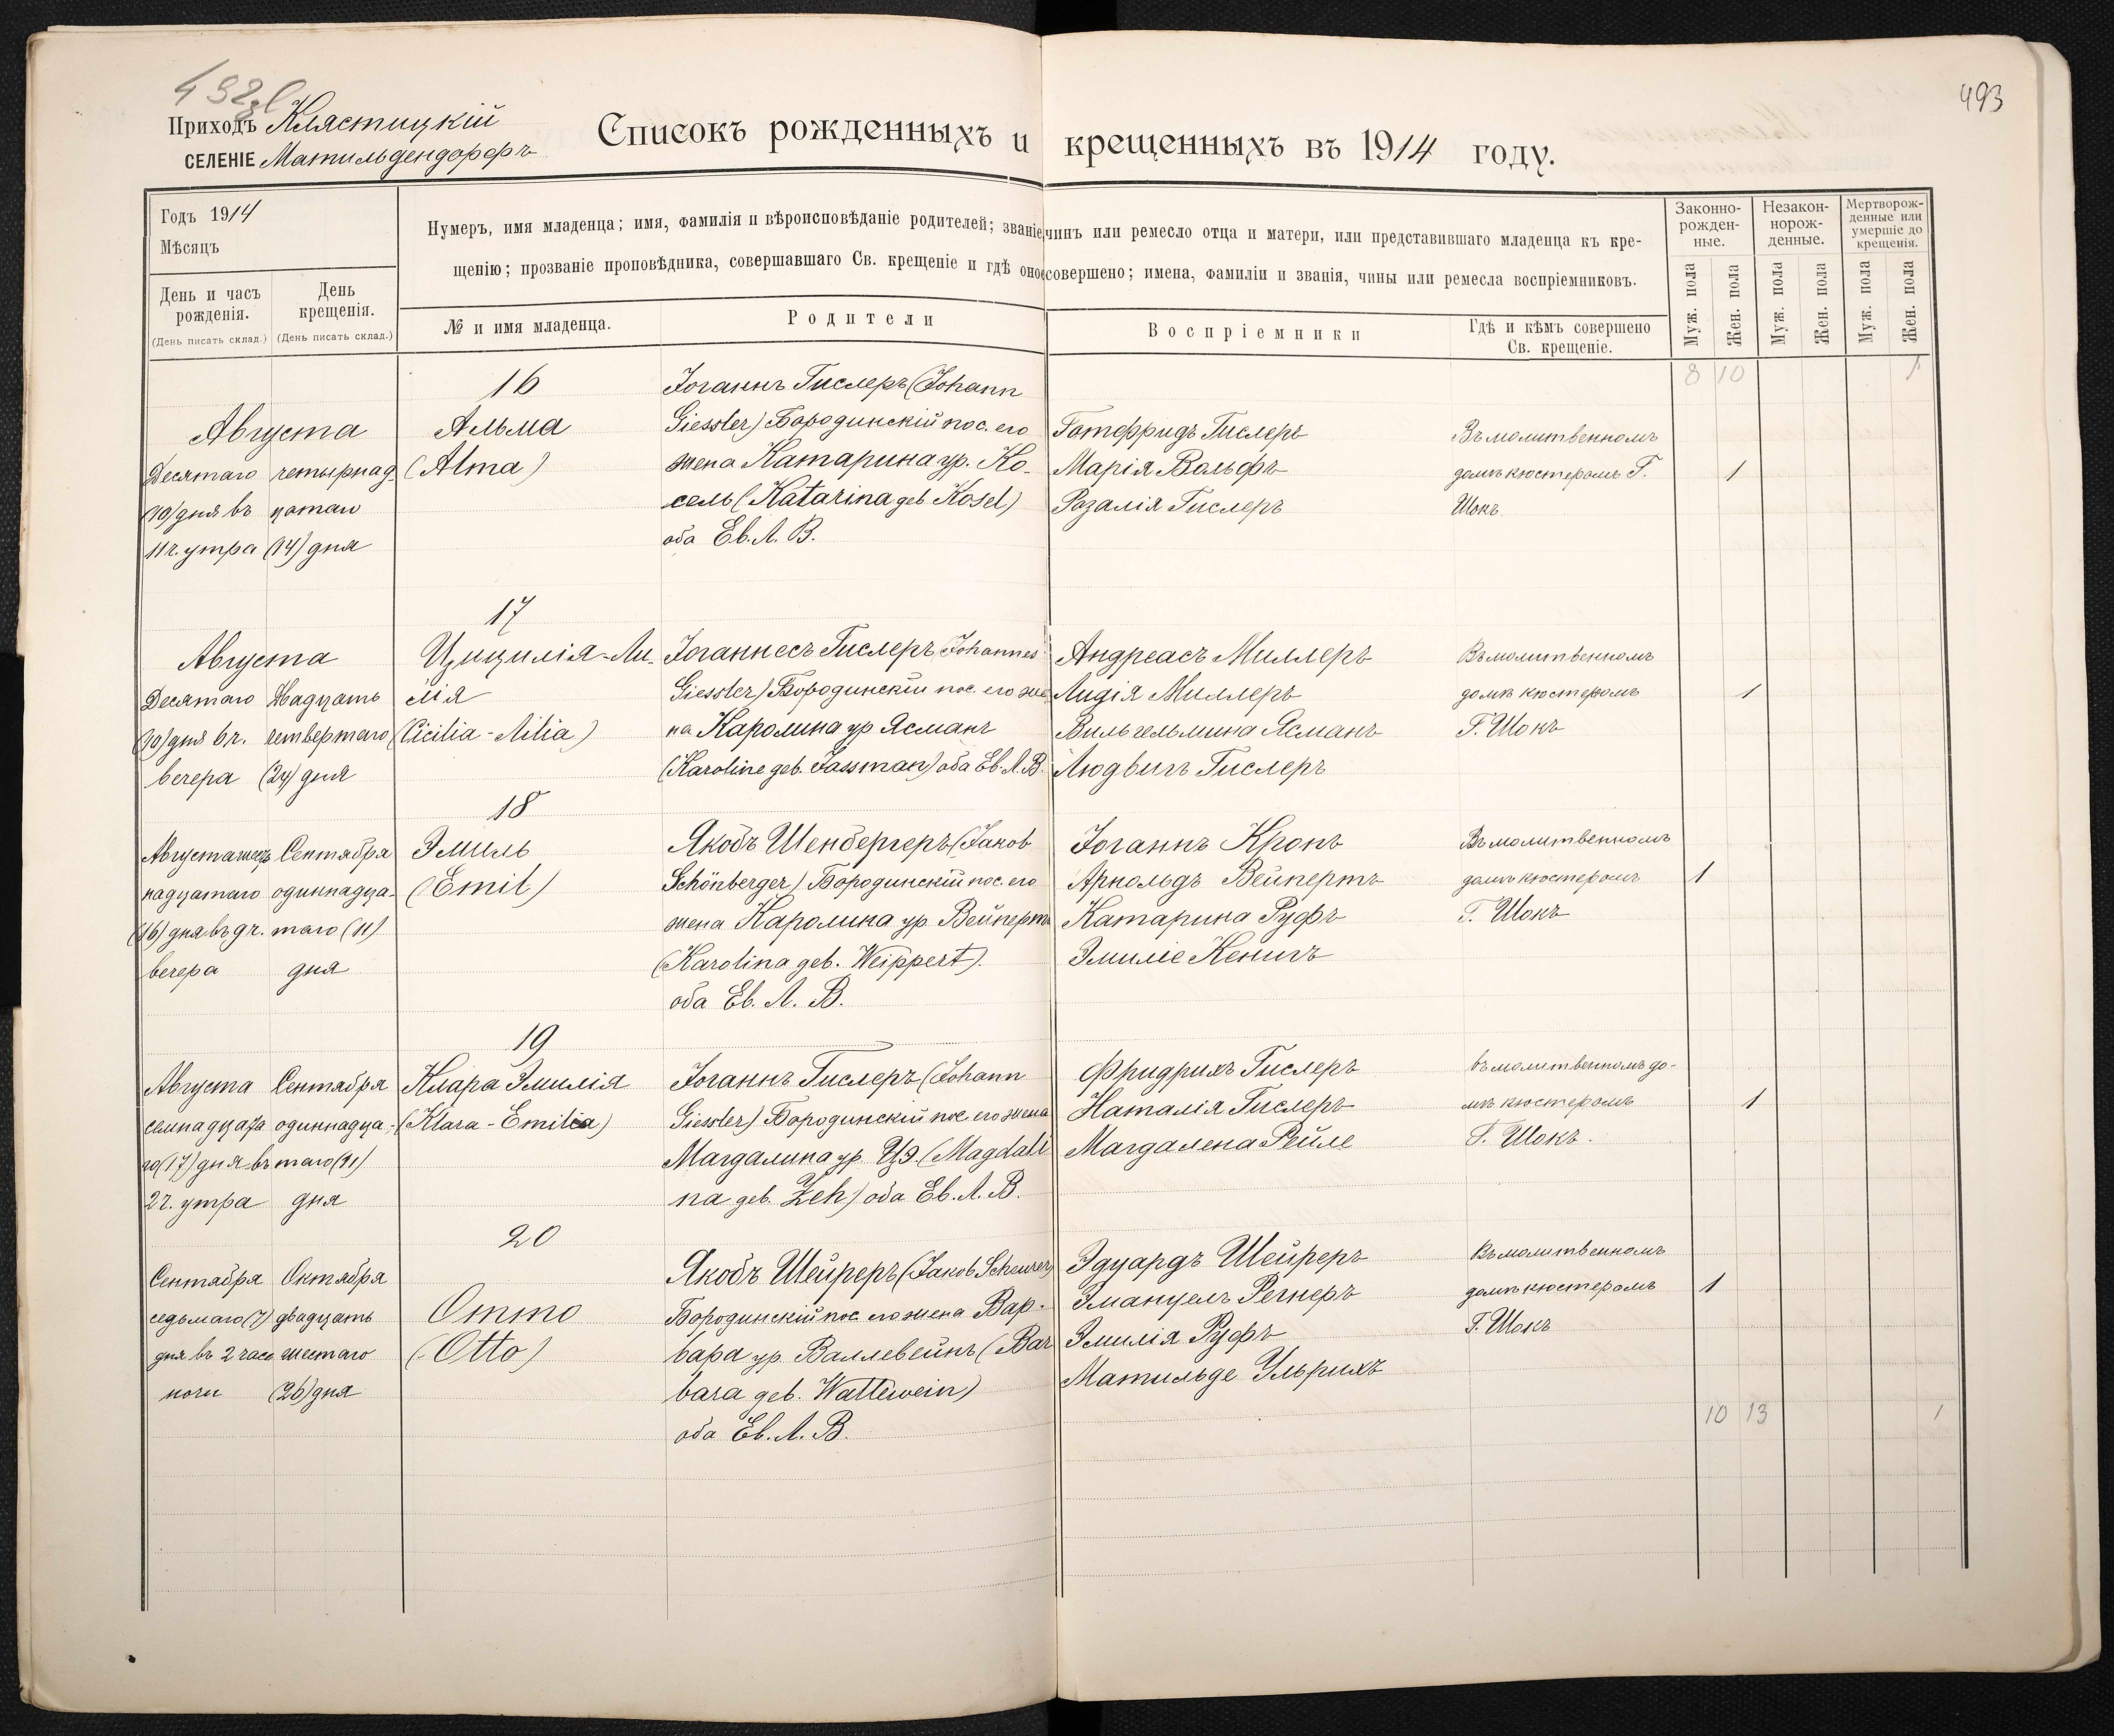 493
Приходъ Клястицкій
СЕЛЕНІЕ Матильдендорфъ
Списокъ рожденныхъ и крещенныхъ въ 1914 году.
Годъ 1914
Мѣсяцъ
День и часъ рожденія.
(День писать склад.)
День крещенія.
(День писать склад.)
Нумеръ, имя младенца; имя, фамилія и вѣроисповѣданіе родителей; званіе, чинъ или ремесло отца и матери, или представившаго младенца къ кре-
щенію; прозваніе проповѣдника, совершавшаго Св. крещеніе и гдѣ оное совершено; имена, фамиліи и званія, чины или ремесла воспріемниковъ.
№ и имя младенца.
Родители
Воспріемники
Гдѣ и кѣмъ совершено
Св. крещеніе.
Законно-
рожден-
ные.
Незакон-
норож-
денные.
Мертворож-
денные или
умершіе до
крещенія.
Муж. пола
Жен. пола
Муж. пола
Жен. пола
Муж. пола
Жен. пола
8 10 1
16
Августа
Десятаго
(10) дня въ
11 ч. утра
четырнад-
цатаго
(14) дня
Альма
(Alma)
Іоганнъ Гислеръ (Johann
Giessler) Бородинскій пос. его
жена Катарина ур. Ко-
сель (Katarina geb. Kosel)
оба Ев. Л. В.
Готфридъ Гислеръ
Марія Вольфъ
Розалія Гислеръ
Въ молитвенномъ
домѣ кюстеромъ Г.
Шокъ
1
17
Августа
Десятаго
(10) дня 6 ч.
вечера
Двадцать
четвертаго
(24) дня
Цицилія-Ли-
лія
(Cicilia-Lilia)
Іоганнесъ Гислеръ (Johannes
Giessler) Бородинскій пос. его же-
на Каролина ур Ясманъ
(Karoline geb. Jassman) оба Ев. Л. В.
Андреасъ Миллеръ
Лидія Миллеръ
Вильгельмина Ясманъ
Людвигъ Гислеръ
Въ молитвенномъ
домѣ кюстеромъ
Г. Шокъ
1
18
Августа шест-
надцатаго
(16) дня въ 9 ч.
вечера
Сентября
одиннадца-
таго (11)
дня
Эмиль
(Emil)
Якобъ Шенбергеръ (Jakob
Schönberger) Бородинскій пос. его
жена Каролина ур. Вейпертъ
(Karolina geb. Weippert).
оба Ев. Л. В.
Іоганнъ Кронъ
Арнольдъ Вейпертъ
Катарина Руфъ
Эмиліе Кенигъ
Въ молитвенномъ
домѣ кюстеромъ
Г. Шокъ
1
19
Августа
семнадцата
го (17) дня въ
2 ч. утра
Сентября
одиннадца-
таго (11)
дня
Клара Эмилія
(Klara-Emilia)
Іоганнъ Гислеръ (Johann
Giessler) Бородинскій пос. его жена
Магдалина ур. Цэ. (Magdali
na geb. Zeh) оба Ев. Л. В.
Фридрихъ Гислеръ
Наталія Гислеръ
Магдалена Рейле
въ молитвенномъ до-
мѣ кюстеромъ
Г. Шокъ.
1
20
Сентября
седьмаго (7)
дня въ 2 часа
ночи
Октября
двадцать
шестаго
(26) дня
Отто
(Otto)
Якобъ Шейреръ (Jakob Scheurer)
Бородинскій пос. его жена Вар-
вара ур. Валлевейнъ (Bar
bara geb. Wallewein)
оба Ев. Л. В.
Эдуардъ Шейреръ
Эмануелъ Регнеръ
Эмилія Руфъ
Матильде Ульрихъ
Въ молитвенномъ
домѣ кюстеромъ
Г. Шокъ
1
10 13 1